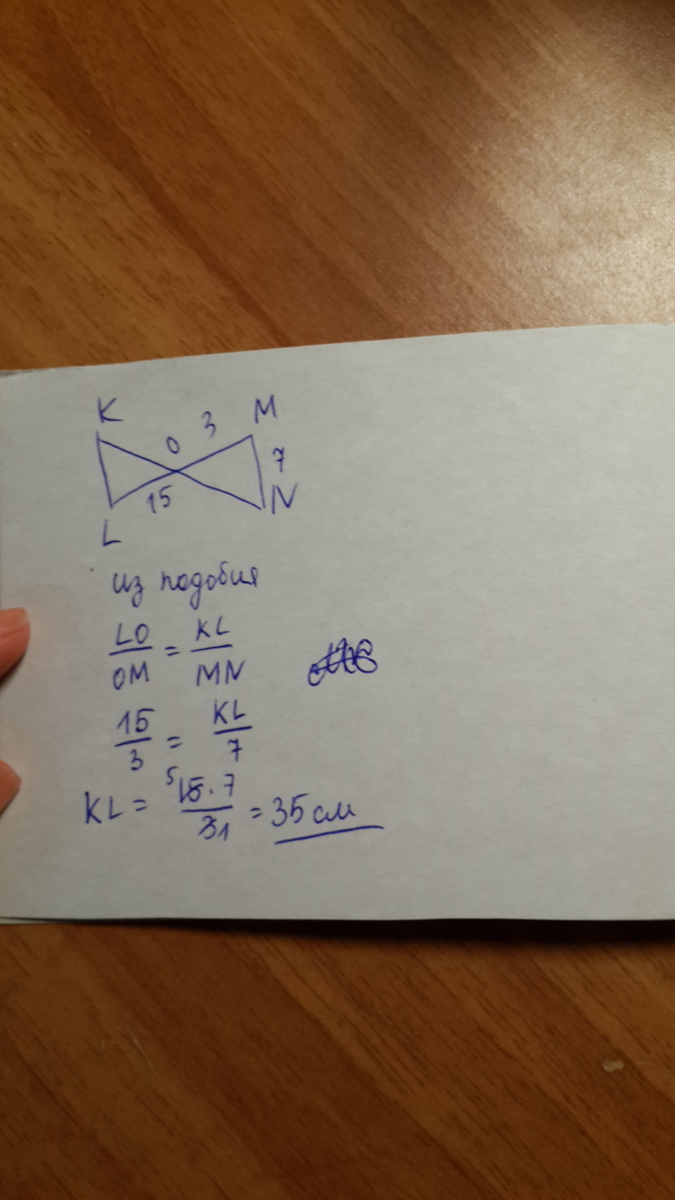 K 3 M
O
7
15 N
L
из подобия
LO/OM = KL/MN
15/3 = KL/7
KL = ⁵15·7/31 = 35 см